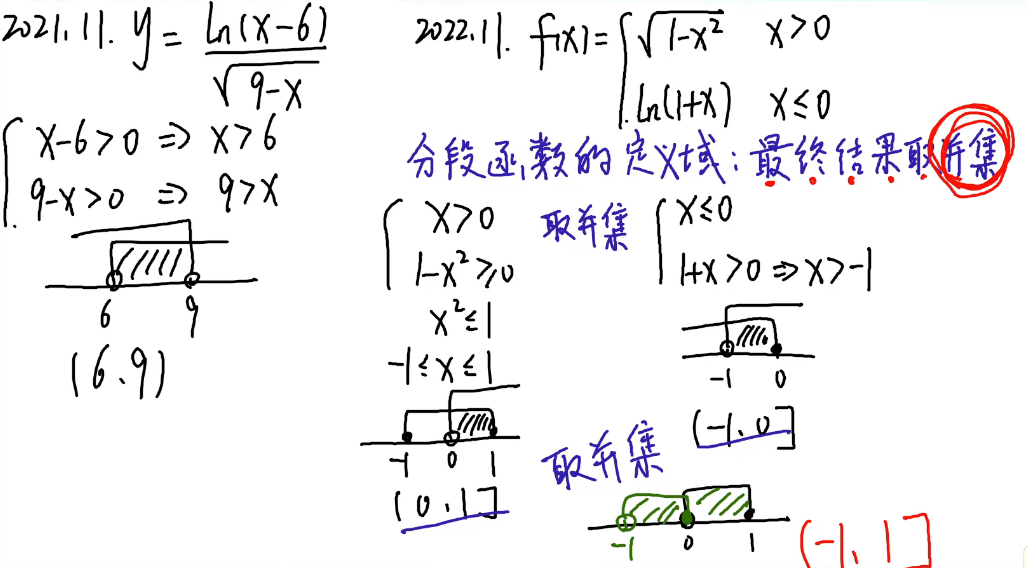 2021.11. y = ln(x-6) / √(9-x)
{ x-6>0 ⇒ x>6
9-x>0 ⇒ 9>x
6 9
(6.9)
2022.11. f(x)= { √(1-x²) x>0
ln(1+x) x≤0
分段函数的定义域:最终结果取并集
{ x>0
1-x²≥0
x²≤1
-1≤x≤1
-1 0 1
(0.1]
取并集
{ x≤0
1+x>0 ⇒ x>-1
-1 0
(-1.0]
取并集
-1 0 1
(-1, 1]